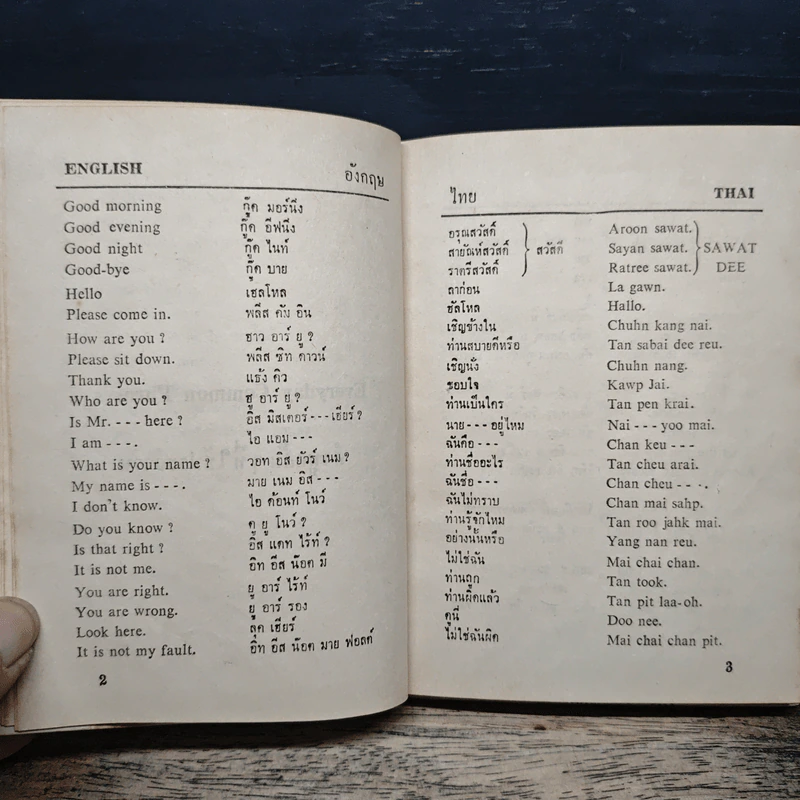 ENGLISH อังกฤษ
Good morning กู๊ด มอร์นึง
Good evening กู๊ด อีฟนึง
Good night กู๊ด ไนท์
Good-bye กู๊ด บาย
Hello เฮลโหล
Please come in. พลีส คัม อิน
How are you ? ฮาว อาร์ ยู ?
Please sit down. พลีส ซิท ดาวน์
Thank you. แธ้ง คิว
Who are you ? ฮู อาร์ ยู ?
Is Mr. --- here ? อีส มิสเตอร์ --- เฮียร์ ?
I am ---. ไอ แอม ---
What is your name ? วอท อีส ยัวร์ เนม ?
My name is ---. มาย เนม อีส ---
I don't know. ไอ ด้อนท์ โนว์
Do you know ? ดู ยู โนว์ ?
Is that right ? อีส แดท ไร้ท์ ?
It is not me. อิท อีส น๊อต มี
You are right. ยู อาร์ ไร้ท์
You are wrong. ยู อาร์ รอง
Look here. ลุค เฮียร์
It is not my fault. อิ๊ท อีส น๊อต มาย ฟอลท์
2
ไทย THAI
อรุณสวัสดิ์ Aroon sawat.
สายัณห์สวัสดิ์ สวัสดี Sayan sawat. SAWAT
ราตรีสวัสดิ์ Ratree sawat. DEE
ลาก่อน La gawn.
ฮัลโหล Hallo.
เชิญข้างใน Chuhn kang nai.
ท่านสบายดีหรือ Tan sabai dee reu.
เชิญนั่ง Chuhn nang.
ขอบใจ Kawp Jai.
ท่านเป็นใคร Tan pen krai.
นาย---อยู่ไหม Nai --- yoo mai.
ฉันคือ --- Chan keu ---
ท่านชื่ออะไร Tan cheu arai.
ฉันชื่อ --- Chan cheu ---.
ฉันไม่ทราบ Chan mai sahp.
ท่านรู้จักไหม Tan roo jahk mai.
อย่างนั้นหรือ Yang nan reu.
ไม่ใช่ฉัน Mai chai chan.
ท่านถูก Tan took.
ท่านผิดแล้ว Tan pit laa-oh.
ดูนี่ Doo nee.
ไม่ใช่ฉันผิด Mai chai chan pit.
3